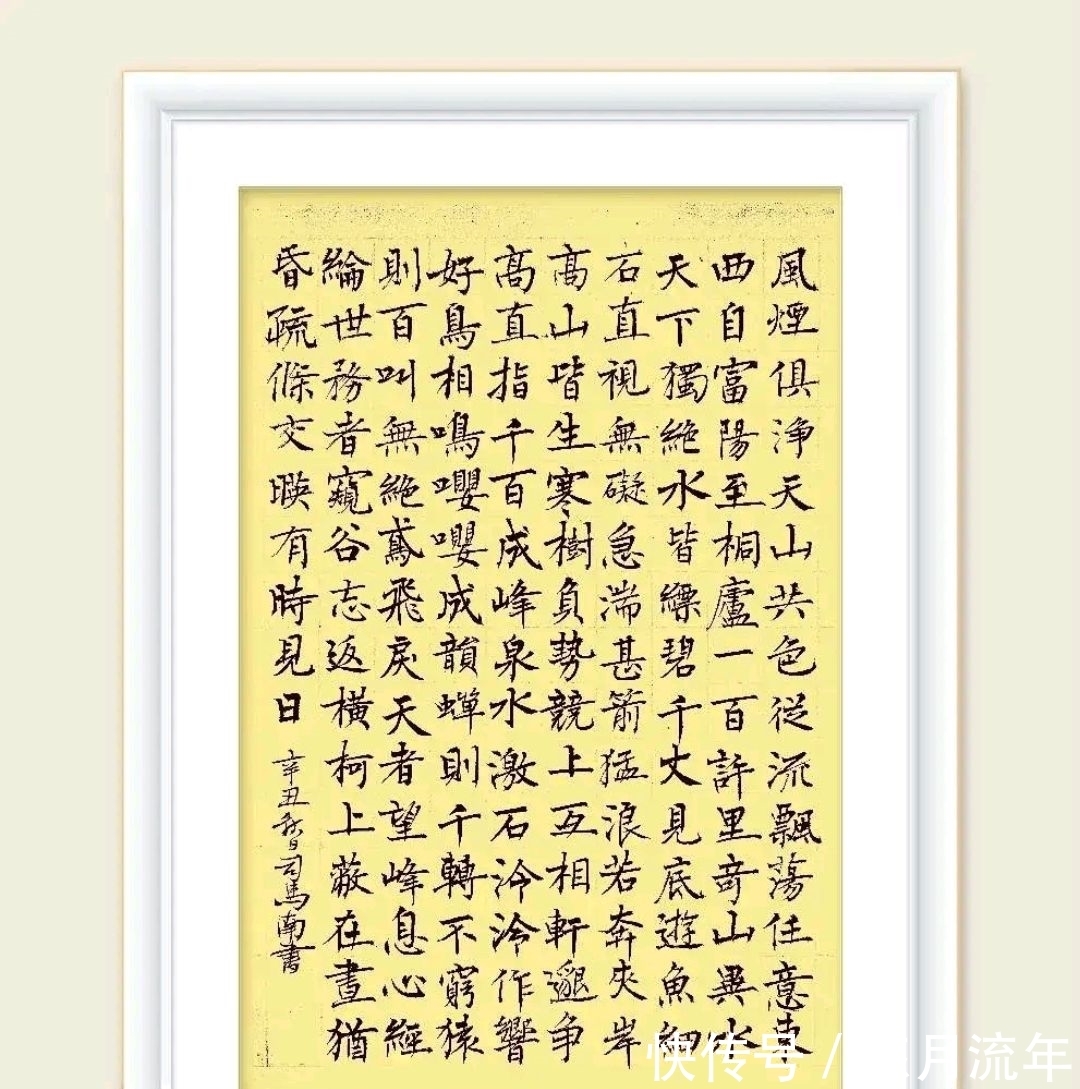 風煙俱浄天山共色從流飄蕩任意東
西自富陽至桐廬一百許里奇山異水
天下獨絶水皆縹碧千丈見底遊魚細
石直視無礙急湍甚箭猛浪若奔夾岸
髙山皆生寒樹負勢競上互相軒邈争
髙直指千百成峰泉水激石泠泠作響
好鳥相鳴嚶嚶成韻蟬則千轉不窮猿
則百叫無絶鳶飛戾天者望峰息心經
綸世務者窺谷志返橫柯上蔽在晝猶
昏疏條交暎有時見日
辛丑 司馬南書
快传号 / 月流年